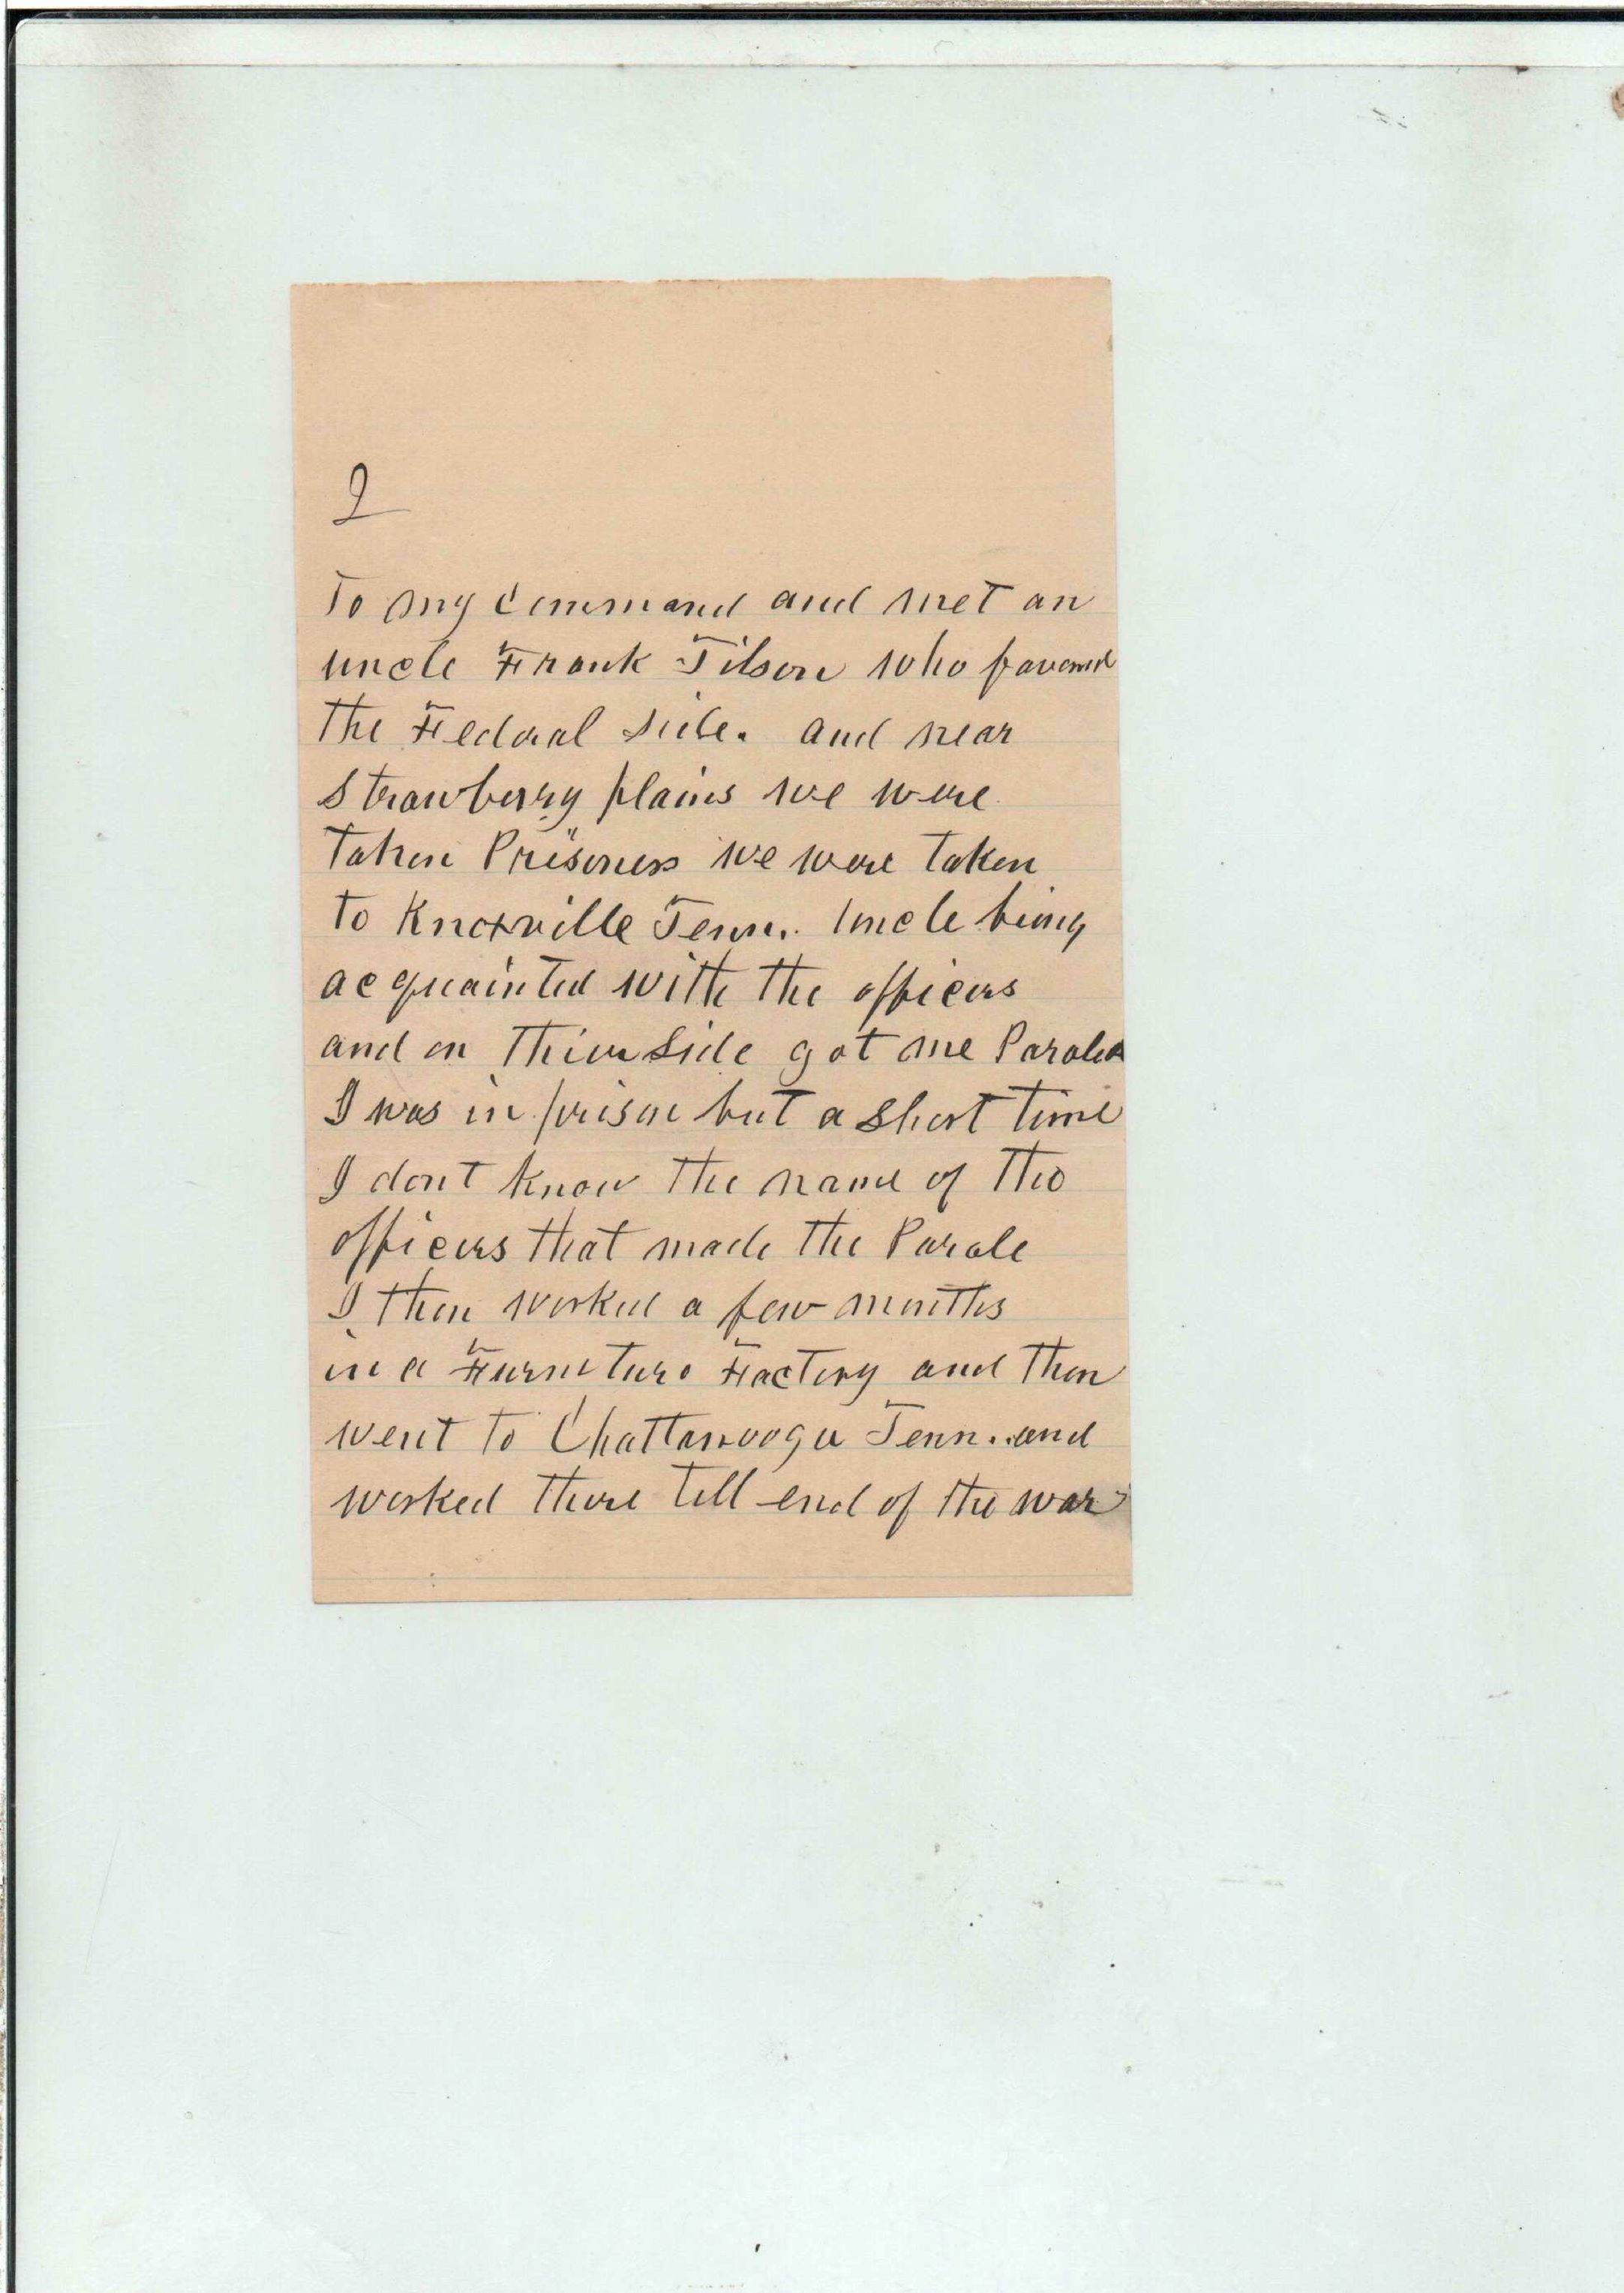 2
To my command and met an
uncle Frank Tilson who favored
the Federal side. and near
Strawberry plains we were
taken Prisoners we were taken
to Knoxville Tenn. Uncle being
acquainted with the officers
and on their side got me Paroled
I was in prison but a short time
I dont know the name of the
officers that made the Parole
I then worked a few months
in a Furniture Factory and then
went to Chattanooga Tenn. and
worked there till end of the war